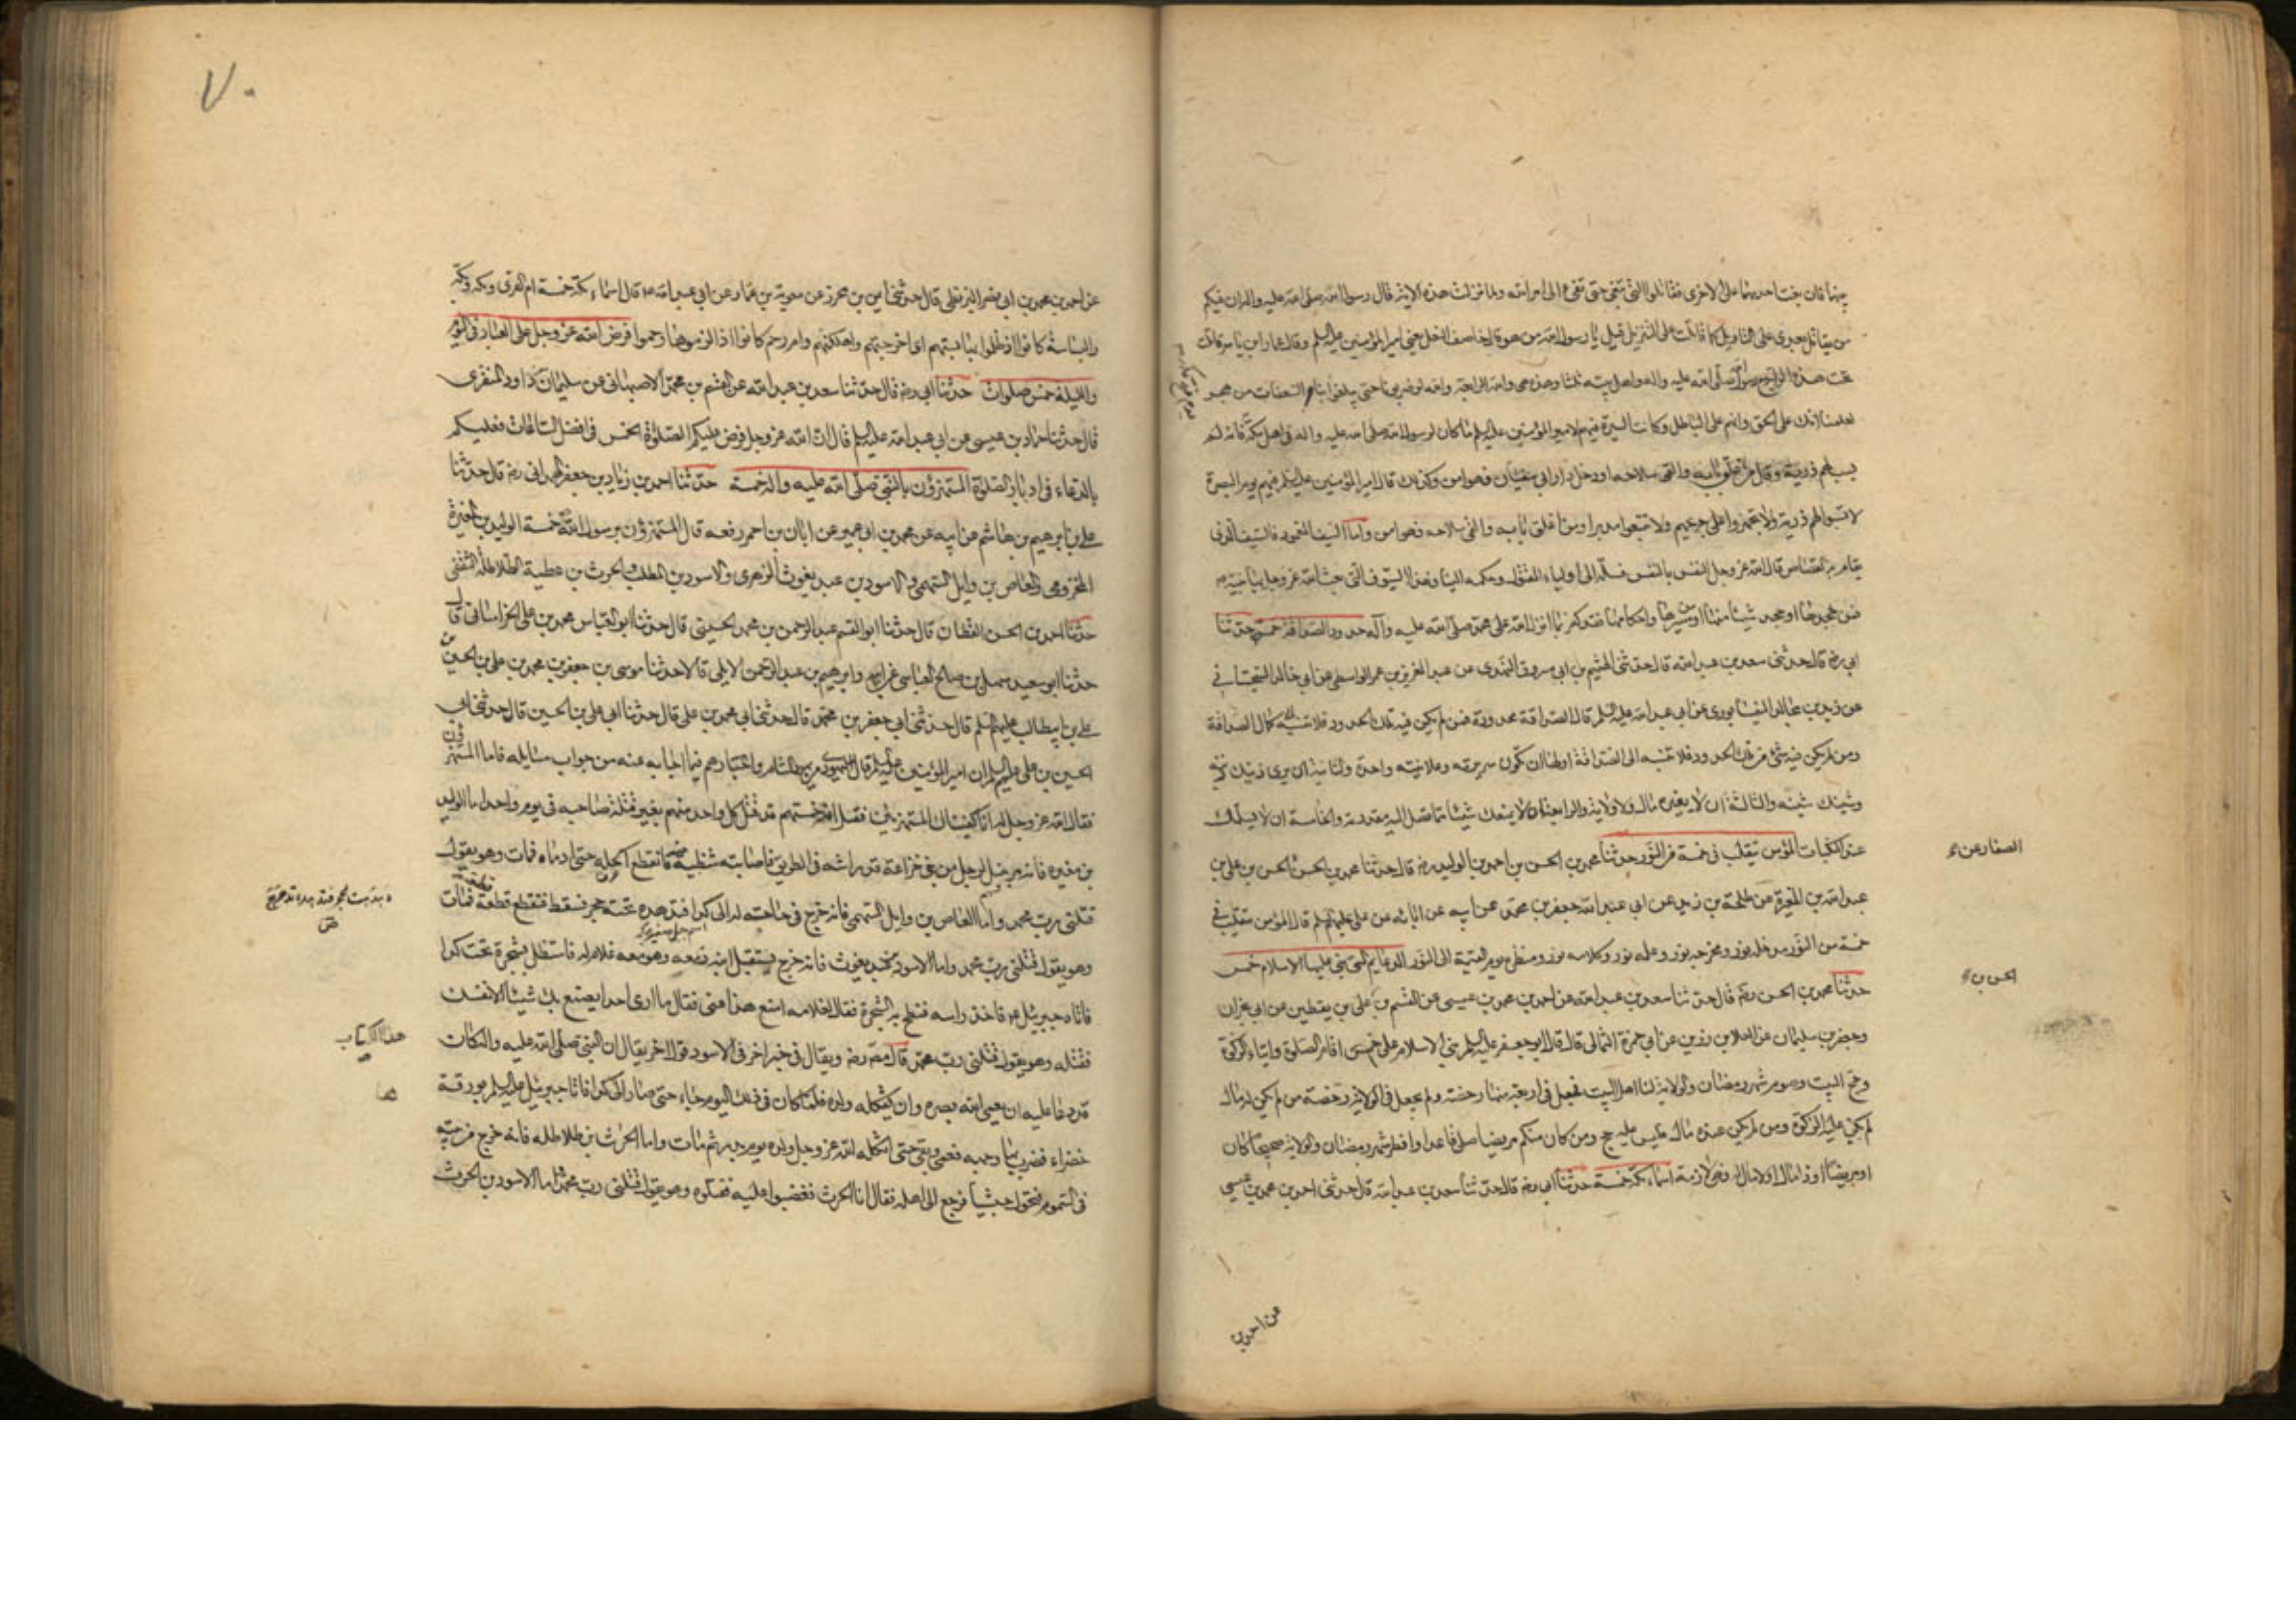 بينهما فان بغت احديهما على الاخرى فقاتلوا التي تبغي حتى تفيء الى امر الله ولما نزلت هذه الاية قال رسول الله صلى الله عليه واله ان فيكم
من يقاتل بعدي على التاويل كما قاتلت على التنزيل قيل يا رسول الله من هو قال خاصف النعل يعني امير المؤمنين عليه السلم وقال عمار بن ياسر قاتلت
تحت هذه الراية مع رسول الله صلى الله عليه واله واهل بيته ثلثا وهذه هي والله الرابعة والله لو ضربونا حتى يبلغوا بنا السعفات من هجر
لعلمنا انك على الحق وانهم على الباطل وكانت السيرة فيهم من امير المؤمنين عليه السلم ما كان لرسول الله صلى الله عليه واله في اهل مكة فانه لم
يسب لهم ذرية وقال من اغلق بابه والقى سلاحه او دخل دار ابي سفيان فهو امن وكذلك قال امير المؤمنين عليه السلم فيهم يوم البصرة
لا تسبوا لهم ذرية ولا تجهزوا على جريحهم ولا تتبعوا مدبرا ومن اغلق بابه والقى سلاحه فهو امن واما السيف المغمود فالسيف الذي
يقام به القصاص قال الله عز وجل النفس بالنفس فسله الى اولياء المقتول وحكمه الينا وهذه السيوف التي بعث الله عز وجل بها نبيه
فمن جحدها او جحد شيئا منها او من سيرها واحكامها فقد كفر بما انزل الله على محمد صلى الله عليه وآله حدود الصداقة خمسة حدثنا
ابي ره قال حدثني سعد بن عبد الله قال حدثني الهيثم بن ابي مسروق النهدي عن عبد العزيز بن عمر الواسطي عن ابي خالد السجستاني
عن زيد بن مخالد النيسابوري عن ابي عبد الله عليه السلم قال الصداقة محدودة فمن لم يكن فيه تلك الحدود فلا تنسبه الى كمال الصداقة
ومن لم يكن فيه شئ من تلك الحدود فلا تنسبه الى الصداقة اولها ان تكون سريرته وعلانيته واحدة والثانية ان يرى زينك زينه
وشينك شينه والثالثة ان لا يغيره مال ولا ولاية والرابعة ان لا يمنعك شيئا مما تصل اليه مقدرته والخامسة ان لا يسلمك
عند النكبات المؤمن يتقلب في خمسة من النور حدثنا محمد بن الحسن بن احمد بن الوليد ره قال حدثنا محمد بن الحسن الحسن بن علي بن
عبد الله بن المغيرة عن طلحة بن زيد عن ابي عبد الله جعفر بن محمد عن ابيه عن ابائه عن علي عليهم السلم قال المؤمن يتقلب في
خمسة من النور مدخله نور ومخرجه نور وعلمه نور وكلامه نور ومنظره يوم القيمة الى النور الدعايم التي بني عليها الاسلام خمس
حدثنا محمد بن الحسن ره قال حدثنا سعد بن عبد الله عن احمد بن محمد بن عيسى عن القسم و علي بن يقطين عن ابن ابي نجران
وجعفر بن سليمان عن العلا بن رزين عن ابي حمزة الثمالي قال قال ابو جعفر عليه السلم بني الاسلام على خمس اقام الصلوة وايتاء الزكوة
وحج البيت وصوم شهر رمضان والولاية لنا اهل البيت فجعل في اربعة منها رخصة ولم يجعل في الولاية رخصة من لم يكن له مال
لم يكن عليه الزكوة ومن لم يكن عنده مال فليس عليه حج ومن كان منكم مريضا صلى قاعدا وافطر شهر رمضان والولاية صحيحا كان
او مريضا او ذا مال او لا مال له فهي لازمة اسماء مكة خمسة حدثنا ابي ره قال حدثنا سعد بن عبد الله قال حدثني احمد بن محمد بن عيسى
الصفار عن
الحسن بن
عن احمد بن
٧٠
عن احمد بن محمد بن ابي نصر البزنطي قال حدثني ايمن بن محرز عن معوية بن عمار عن ابي عبد الله ع قال اسماء مكة خمسة ام القرى ومكة وبكة
والبساسة كانوا اذا ظلموا بها بستهم اي اخرجتهم واهلكتهم وام رحم كانوا اذا لزموها رحموا فرض الله عز وجل على العباد في اليوم
والليلة خمس صلوات حدثنا ابي ره قال حدثنا سعد بن عبد الله عن القسم بن محمد الاصبهاني عن سليمان بن داود المنقري
قال حدثنا حماد بن عيسى عن ابي عبد الله عليه السلم قال ان الله عز وجل فرض عليكم الصلوة الخمس في افضل الساعات فعليكم
بالدعاء في ادبار الصلوة المستهزؤن بالنبي صلى الله عليه واله خمسة حدثنا احمد بن زياد بن جعفر الهمداني ره قال حدثنا
علي بن ابرهيم بن هاشم عن ابيه عن محمد بن ابي عمير عن ابان بن احمر رفعه قال المستهزؤن برسول الله خمسة الوليد بن المغيرة
المخزومي والعاص بن وايل السهمي والاسود بن عبد يغوث الزهري والاسود بن المطلب والحرث بن عطية الطلاطلة الثقفي
حدثنا احمد بن الحسن القطان قال حدثنا ابو القسم عبد الرحمن بن محمد الحسيني قال حدثنا ابو العباس محمد بن علي الخراساني قال
حدثنا ابو سعيد سهل بن صالح العباسي عن ابيه وابرهيم بن عبد الرحمن الايلي قالا حدثنا موسى بن جعفر بن محمد بن علي بن الحسين بن
علي بن ابيطالب عليهم السلم قال حدثني ابي جعفر بن محمد قال حدثني ابي محمد بن علي قال حدثنا ابي علي بن الحسين قال حدثني ابي
الحسين بن علي عليهم السلم ان امير المؤمنين عليه السلم قال ليهودي من يهود الشام واحبارهم فيما اجابه عنه من جواب مسايله فاما المستهزؤن
فقال الله عز وجل له انا كفيناك المستهزئين فقتل الله خمستهم قد قتل كل واحد منهم بغير قتلة صاحبه في يوم واحد اما الوليد
بن مغيرة فانه مر بنبل لرجل من بني خزاعة قد راشه في الطريق فاصابته شظية منه فانقطع اكحله حتى ادماه فمات وهو يقول
قتلني رب محمد واما العاص بن وايل السهمي فانه خرج في حاجته له الى كدا فتدهده تحته حجر فسقط فتقطع قطعة قطعة فمات
وهو يقول قتلني رب محمد واما الاسود بن عبد يغوث فانه خرج يستقبل ابنه زمعه وهو معه غلام له فاستظل بشجرة تحت كدا
فاتاه جبرئيل ع فاخذ راسه فنطح به الشجرة فقال لغلامه امنع هذا عني فقال ما ارى احدا يصنع بك شيئا الا نفسك
فقتله وهو يقول قتلني رب محمد قال مصنف ره ويقال في خبر اخر في الاسود قول اخر يقال ان النبي صلى الله عليه واله كان
قد دعا عليه ان يعمي الله بصره وان يثكله ولده فلما كان في ذلك اليوم جاء حتى صار الى كدا فاتاه جبرئيل عليه السلم بورقة
خضراء فضرب بها وجهه فعمي وبقي حتى اثكله الله عز وجل ولده يوم بدر ثم مات واما الحرث بن طلاطله فانه خرج من بيته
في السموم فتحول حبشيا فرجع الى اهله فقال انا الحرث فغضبوا عليه فقتلوه وهو يقول قتلني رب محمد واما الاسود بن الحرث
هذا الكتاب
ها